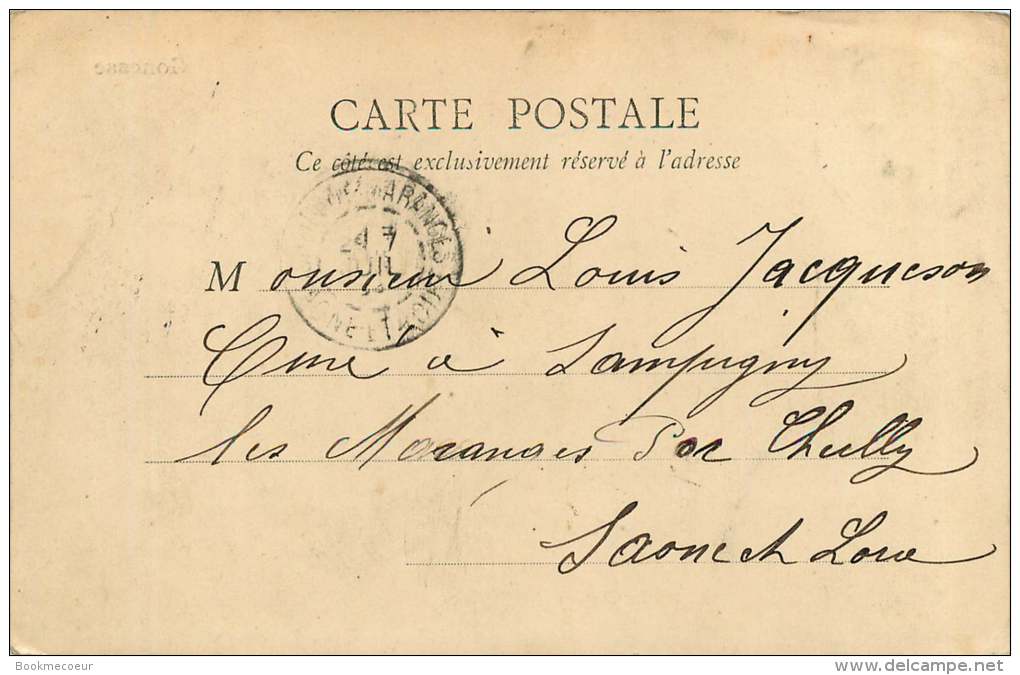 CARTE POSTALE
Ce côté est exclusivement réservé à l'adresse
Monsieur Louis Jacqueson
Curé à Sampigny
les Maranges Par Cheilly
Saone et Loire
Bookmecoeur
www.delcampe.net